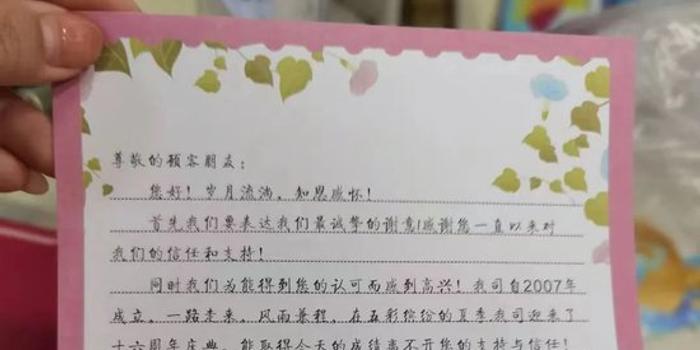 尊敬的顾客朋友：
您好！岁月流淌，知恩感怀！
首先我们要表达我们最诚挚的谢意！感谢您一直以来对
我们的信任和支持！
同时我们为能得到您的认可而感到高兴！我司自2007年
成立，一路走来，风雨兼程，在五彩缤纷的夏季我司迎来了
十六周年庆典，能取得今天的成绩离不开您的支持与信任！